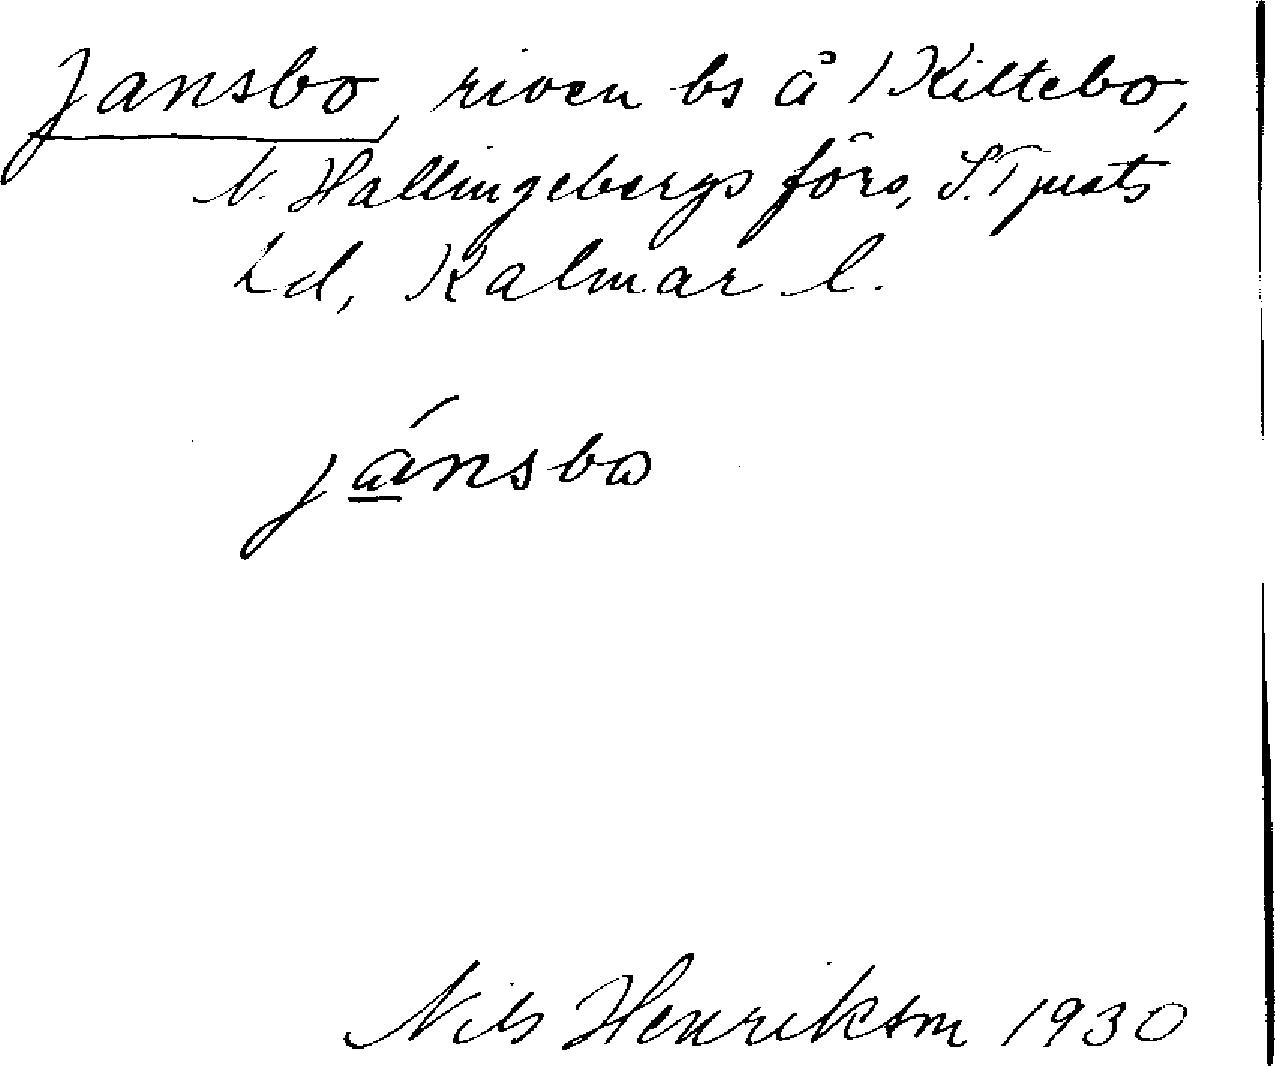 Jansbo, riven bs å Kittebo,
V. Hallingebergs förs, S. Tjusts
hd, Kalmar l.
jánsbo
Nils Henrikson 1930